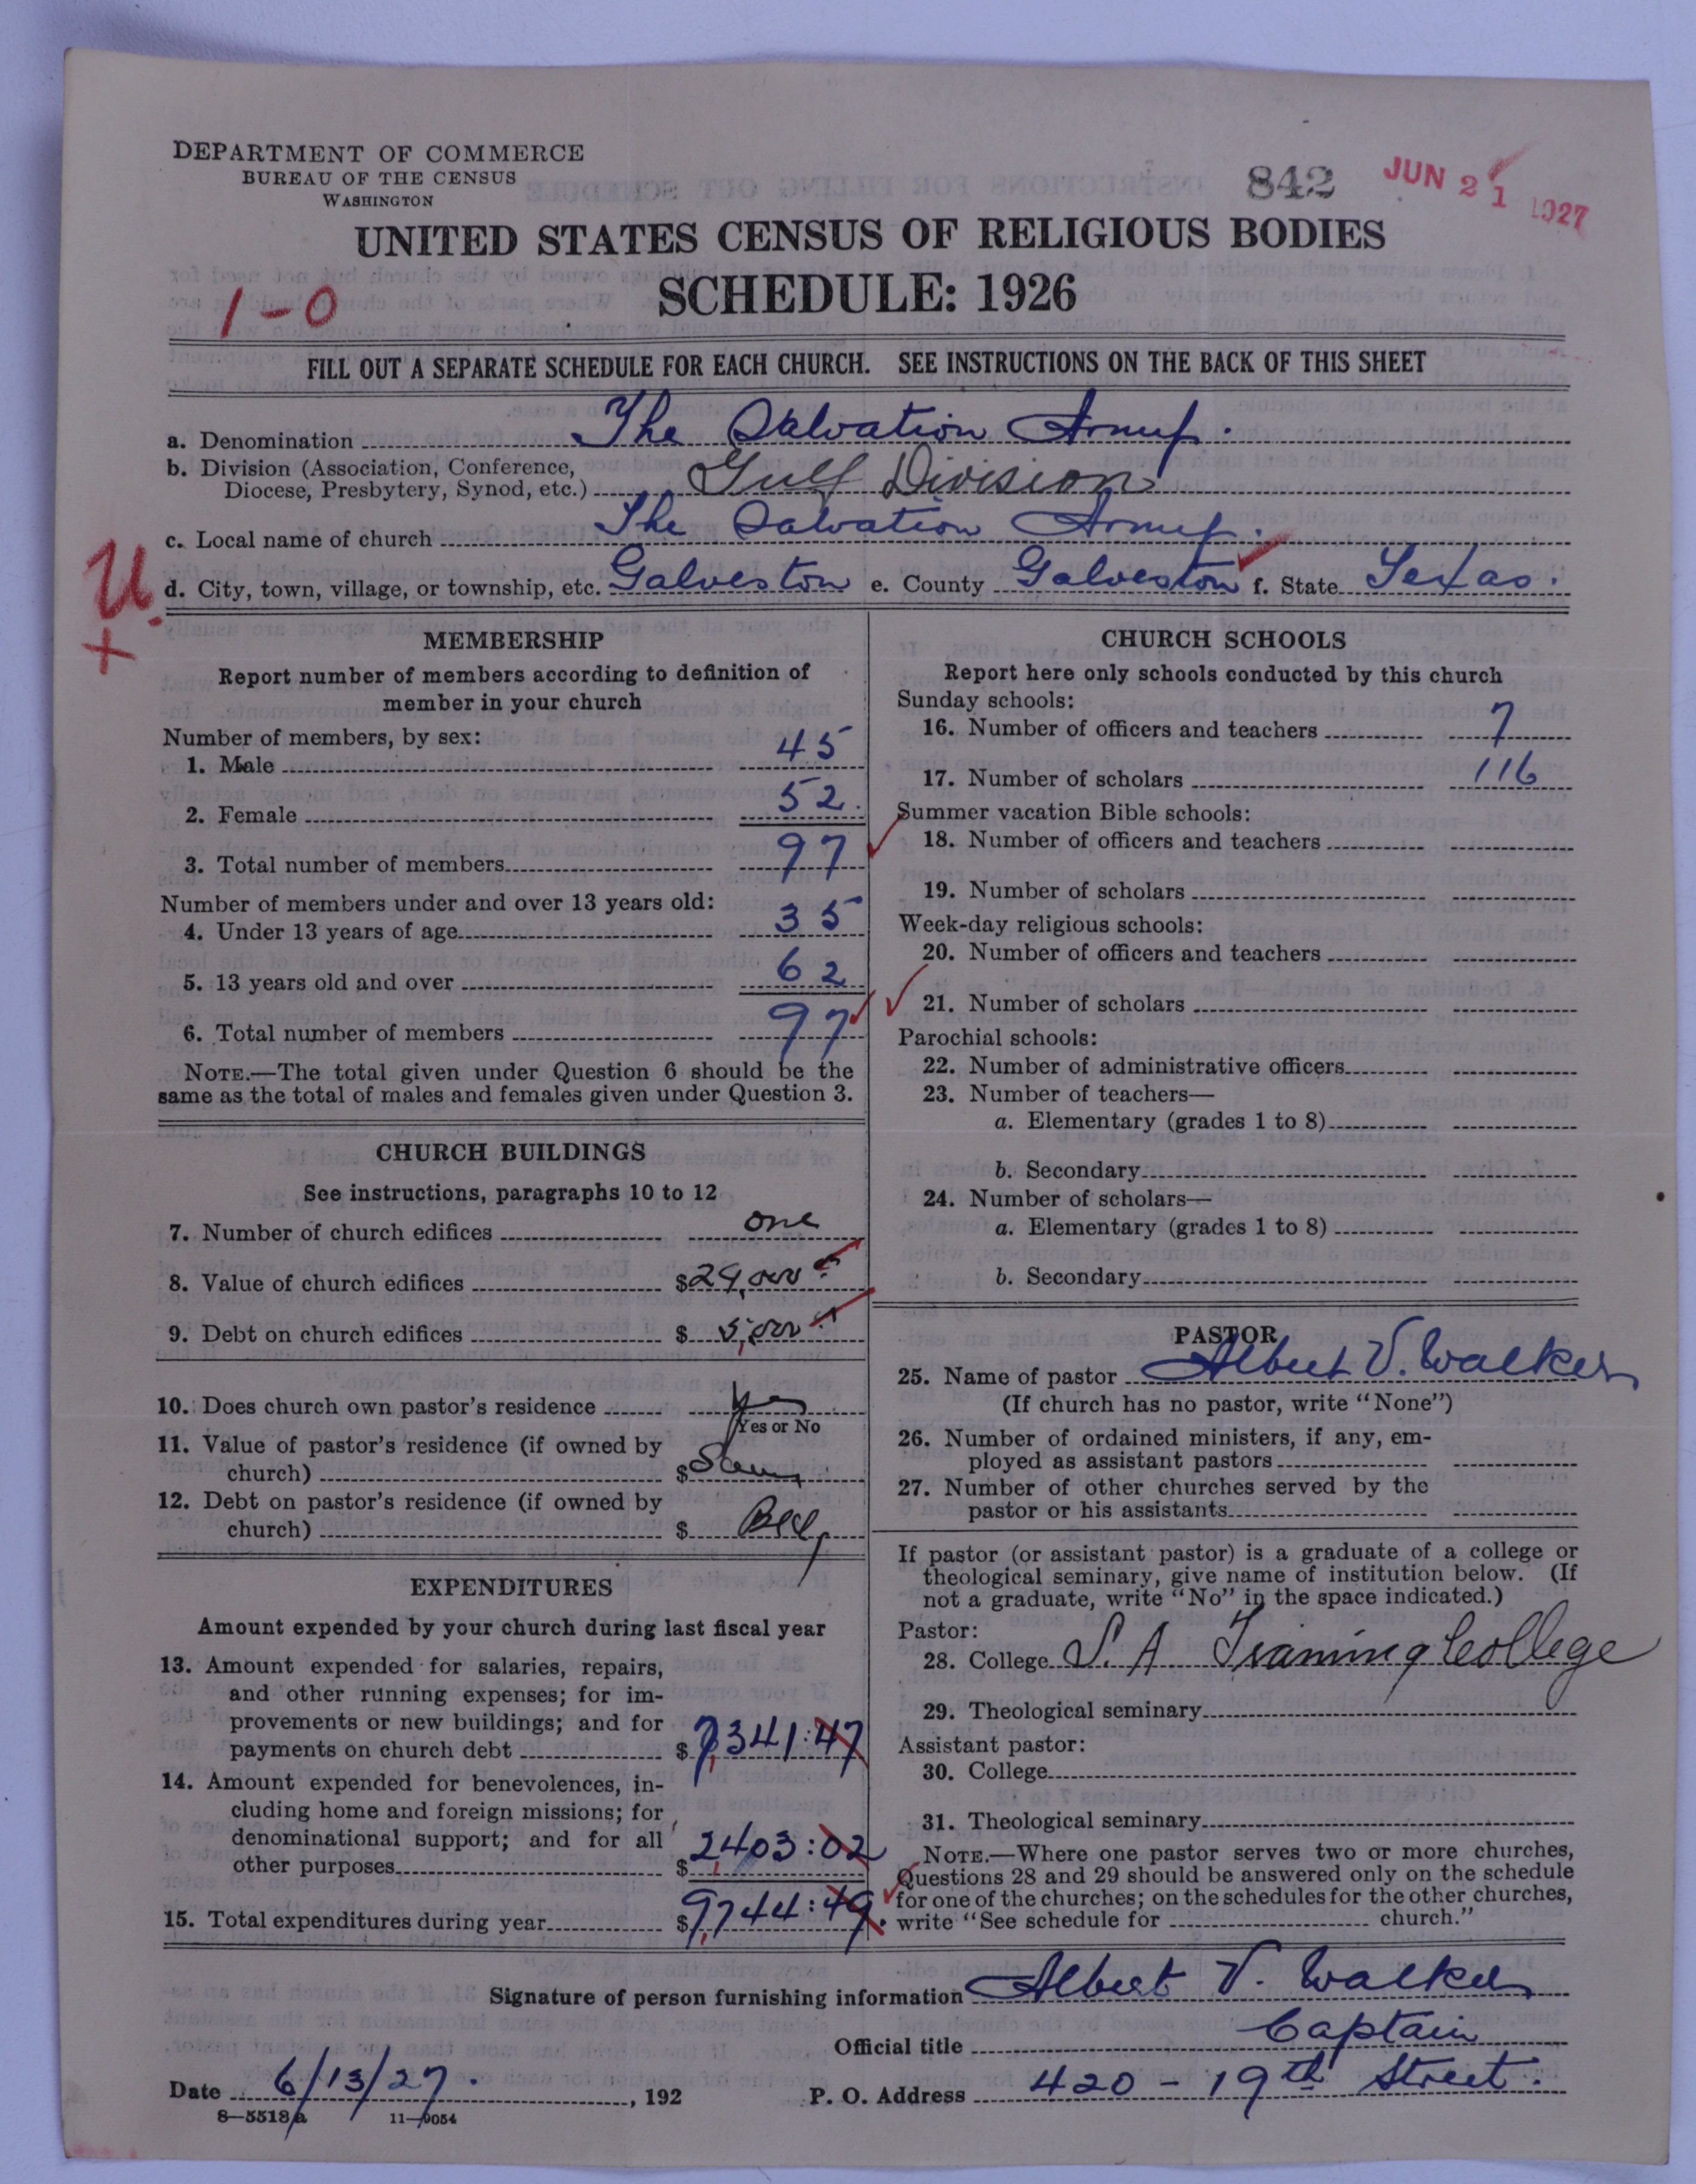 DEPARTMENT OF COMMERCE
BUREAU OF THE CENSUS
WASHINGTON
842
JUN 21 1927
UNITED STATES CENSUS OF RELIGIOUS BODIES
SCHEDULE: 1926
1-0
FILL OUT A SEPARATE SCHEDULE FOR EACH CHURCH. SEE INSTRUCTIONS ON THE BACK OF THIS SHEET
a. Denomination The Salvation Army.
b. Division (Association, Conference,
Diocese, Presbytery, Synod, etc.) Gulf Division
c. Local name of church The Salvation Army.
U.
+
d. City, town, village, or township, etc. Galveston e. County Galveston f. State Texas.
MEMBERSHIP
Report number of members according to definition of
member in your church
Number of members, by sex:
1. Male 45
2. Female 52.
3. Total number of members 97
Number of members under and over 13 years old:
4. Under 13 years of age 35
5. 13 years old and over 62
6. Total number of members 97
NOTE.—The total given under Question 6 should be the
same as the total of males and females given under Question 3.
CHURCH BUILDINGS
See instructions, paragraphs 10 to 12
7. Number of church edifices one
8. Value of church edifices $29,000
9. Debt on church edifices $ 5,000
10. Does church own pastor's residence Yes
Yes or No
11. Value of pastor's residence (if owned by
church) $
12. Debt on pastor's residence (if owned by
church) $
EXPENDITURES
Amount expended by your church during last fiscal year
13. Amount expended for salaries, repairs,
and other running expenses; for im-
provements or new buildings; and for
payments on church debt $7,341:47
14. Amount expended for benevolences, in-
cluding home and foreign missions; for
denominational support; and for all
other purposes $2,403:02
15. Total expenditures during year $9,744:49.
CHURCH SCHOOLS
Report here only schools conducted by this church
Sunday schools:
16. Number of officers and teachers 7
17. Number of scholars 116
Summer vacation Bible schools:
18. Number of officers and teachers
19. Number of scholars
Week-day religious schools:
20. Number of officers and teachers
21. Number of scholars
Parochial schools:
22. Number of administrative officers
23. Number of teachers—
a. Elementary (grades 1 to 8)
b. Secondary
24. Number of scholars—
a. Elementary (grades 1 to 8)
b. Secondary
PASTOR
25. Name of pastor Albert V. Walker
(If church has no pastor, write "None")
26. Number of ordained ministers, if any, em-
ployed as assistant pastors
27. Number of other churches served by the
pastor or his assistants
If pastor (or assistant pastor) is a graduate of a college or
theological seminary, give name of institution below. (If
not a graduate, write "No" in the space indicated.)
Pastor:
28. College S. A Training College
29. Theological seminary
Assistant pastor:
30. College
31. Theological seminary
NOTE.—Where one pastor serves two or more churches,
Questions 28 and 29 should be answered only on the schedule
for one of the churches; on the schedules for the other churches,
write "See schedule for church."
Signature of person furnishing information Albert V. Walker
Official title Captain
Date 6/13/27. , 192 P. O. Address 420 - 19th Street.
8—5518a 11—9054